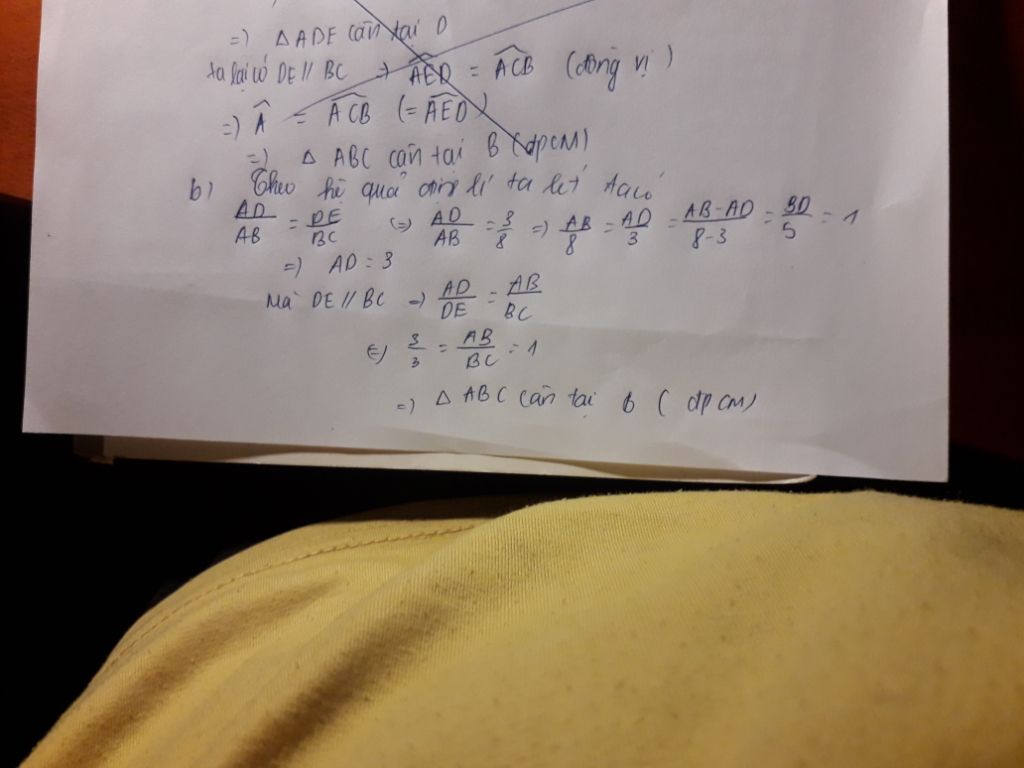 => △ADE cân tại D
ta lại có DE // BC => \widehat{AED} = \widehat{ACB} (đồng vị)
=> \widehat{A} = \widehat{ACB} (= \widehat{AED})
=> △ ABC cân tại B (đpcM)
b) Theo hệ quả định lí ta lét ta có
AD/AB = DE/BC <=> AD/AB = 3/8 => AB/8 = AD/3 = AB-AD/8-3 = BD/5 = 1
=> AD = 3
Mà DE // BC => AD/DE = AB/BC
<=> 3/3 = AB/BC = 1
=> △ ABC cân tại B (đpcM)